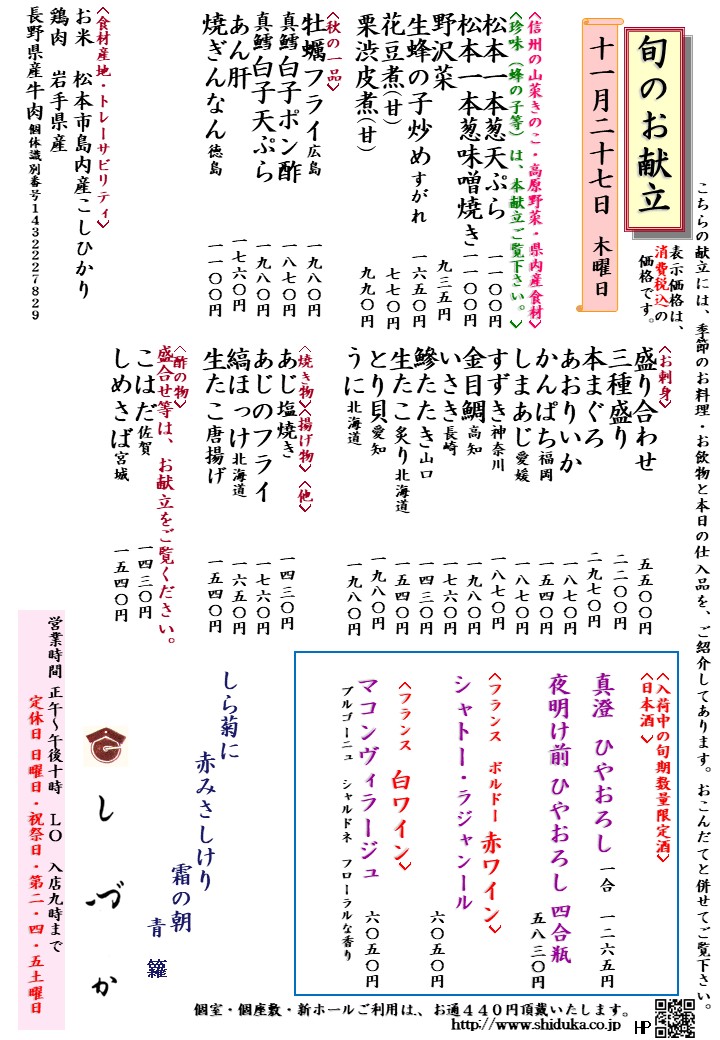 こちらの献立には、季節のお料理・お飲物と本日の仕入品を、ご紹介してあります。おこんだてと併せてご覧下さい。
旬のお献立
表示価格は、
消費税込の
価格です。
十一月二十七日 木曜日
〈信州の山菜きのこ・高原野菜・県内産食材〉
〈珍味（蜂の子等）は、本献立ご覧下さい。〉
松本一本葱天ぷら 一一〇〇円
松本一本葱味噌焼き 一一〇〇円
野沢菜 九三五円
生蜂の子炒め すがれ 一六五〇円
花豆煮(甘) 七七〇円
栗渋皮煮(甘) 九九〇円
〈秋の一品〉
牡蠣フライ 広島 一九八〇円
真鱈白子ポン酢 一八七〇円
真鱈白子天ぷら 一九八〇円
あん肝 一七六〇円
焼ぎんなん 徳島 一一〇〇円
〈食材産地・トレーサビリティ〉
お米 松本市島内産こしひかり
鶏肉 岩手県産
長野県産牛肉 個体識別番号1432227829
〈お刺身〉
盛り合わせ 五五〇〇円
三種盛り 二二〇〇円
本まぐろ 二九七〇円
あおりいか 一八七〇円
かんぱち 福岡 一五四〇円
しまあじ 愛媛 一八七〇円
すずき 神奈川 一八七〇円
金目鯛 高知 一九八〇円
いさき 長崎 一七六〇円
鰺たたき 山口 一四三〇円
生たこ炙り 北海道 一五四〇円
とり貝 愛知 一九八〇円
うに 北海道 一九八〇円
〈焼き物〉〈揚げ物〉〈他〉
あじ塩焼き 一四三〇円
あじのフライ 一七六〇円
縞ほっけ 北海道 一六五〇円
生たこ唐揚げ 一五四〇円
盛合せ等は、お献立をご覧ください。
〈酢の物〉
こはだ 佐賀 一四三〇円
しめさば 宮城 一五四〇円
〈入荷中の旬期数量限定酒〉
〈日本酒〉
真澄 ひやおろし 一合 一二六五円
夜明け前 ひやおろし 四合瓶 五八三〇円
〈フランス ボルドー 赤ワイン〉
シャトー・ラジャンール 六〇五〇円
〈フランス 白ワイン〉
マコンヴィラージュ 六〇五〇円
ブルゴーニュ シャルドネ フローラルな香り
しら菊に
赤みさしけり
霜の朝
青籬
しづか
営業時間 正午～午後十時 LO 入店九時まで
定休日 日曜日・祝祭日・第二・四・五土曜日
個室・個座敷・新ホールご利用は、お通４４０円頂戴いたします。
http://www.shiduka.co.jp HP